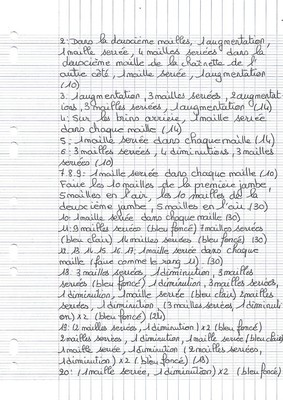 2. Dans la deuxième mailles, 1 augmentation,
1 maille serrée, 4 mailles serrées dans la
deuxième maille de la chaînette de l'
autre côté, 1 maille serrée, 1 augmentation
(10)
3. 1 augmentation, 3 mailles serrées, 2 augmentat
ions, 3 mailles serrées, 1 augmentation (14)
4: Sur les brins arrière, 1 maille serrée
dans chaque maille (14)
5: 1 maille serrée dans chaque maille (14)
6: 3 mailles serrées, 4 diminutions, 3 mailles
serrées (10)
7.8.9: 1 maille serrée dans chaque maille (10)
Faire les 10 mailles de la première jambe,
5 mailles en l'air, les 10 mailles de la
deuxième jambe, 5 mailles en l'air (30)
10. 1 maille serrée dans chaque maille (30)
11: 9 mailles serrées (bleu foncé) 7 mailles serrées
(bleu clair) 14 mailles serrées (bleu foncé) (30)
12. 13. 14. 15. 16. 17: 1 maille serrée dans chaque
maille (faire comme le rang 11). (30)
18: 3 mailles serrées, 1 diminution, 3 mailles
serrées (bleu foncé) 1 diminution, 3 mailles serrées,
1 diminution, 1 maille serrée (bleu clair) 2 mailles
serrées, 1 diminution, (3 mailles serrées, 1 diminuti
on) x2 (bleu foncé) (24)
19: (2 mailles serrées, 1 diminution) x2 (bleu foncé)
2 mailles serrées, 1 diminution, 1 maille serrée (bleu clair)
1 maille serrée, 1 diminution (2 mailles serrées,
1 diminution) x2 (bleu foncé) (18)
20: (1 maille serrée, 1 diminution) x2 (bleu foncé)